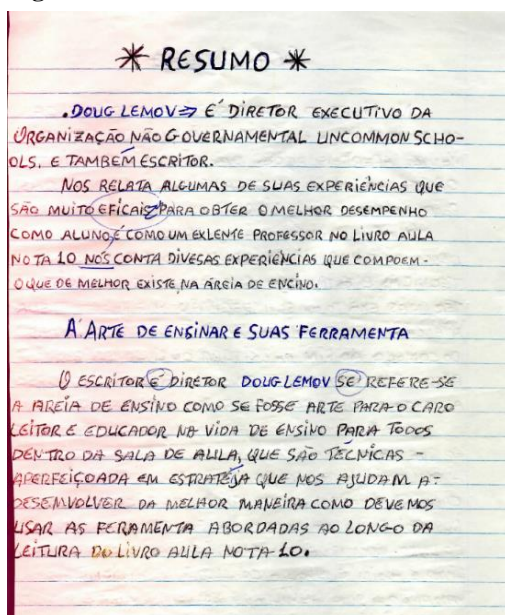 * RESUMO *
.DOUG LEMOV => É DIRETOR EXECUTIVO DA
ORGANIZAÇÃO NÃO GOVERNAMENTAL UNCOMMON SCHO-
OLS, E TAMBÉM ESCRITOR.
NOS RELATA ALGUMAS DE SUAS EXPERIÊNCIAS QUE
SÃO MUITO EFICAIS PARA OBTER O MELHOR DESEMPENHO
COMO ALUNO É COMO UM EXLENTE PROFESSOR NO LIVRO AULA
NOTA 10 NOS CONTA DIVESAS EXPERIÊNCIAS QUE COMPOEM-
O QUE DE MELHOR EXISTE NA ÁREIA DE ENCINO.
A ARTE DE ENSINAR E SUAS FERRAMENTA
O ESCRITOR E DIRETOR DOUG LEMOV SE REFERE-SE
A AREIA DE ENSINO COMO SE FOSSE ARTE PARA O CARO
LEITOR E EDUCADOR NA VIDA DE ENSINO PARA TODOS
DENTRO DA SALA DE AULA, QUE SÃO TÉCNICAS -
APERFEIÇOADA EM ESTRATÉJA QUE NOS AJUDAM A-
DESEMVOLVER DA MELHOR MANEIRA COMO DEVEMOS
USAR AS FERAMENTA ABORDADAS AO LONGO DA
LEITURA DO LIVRO AULA NOTA-10.